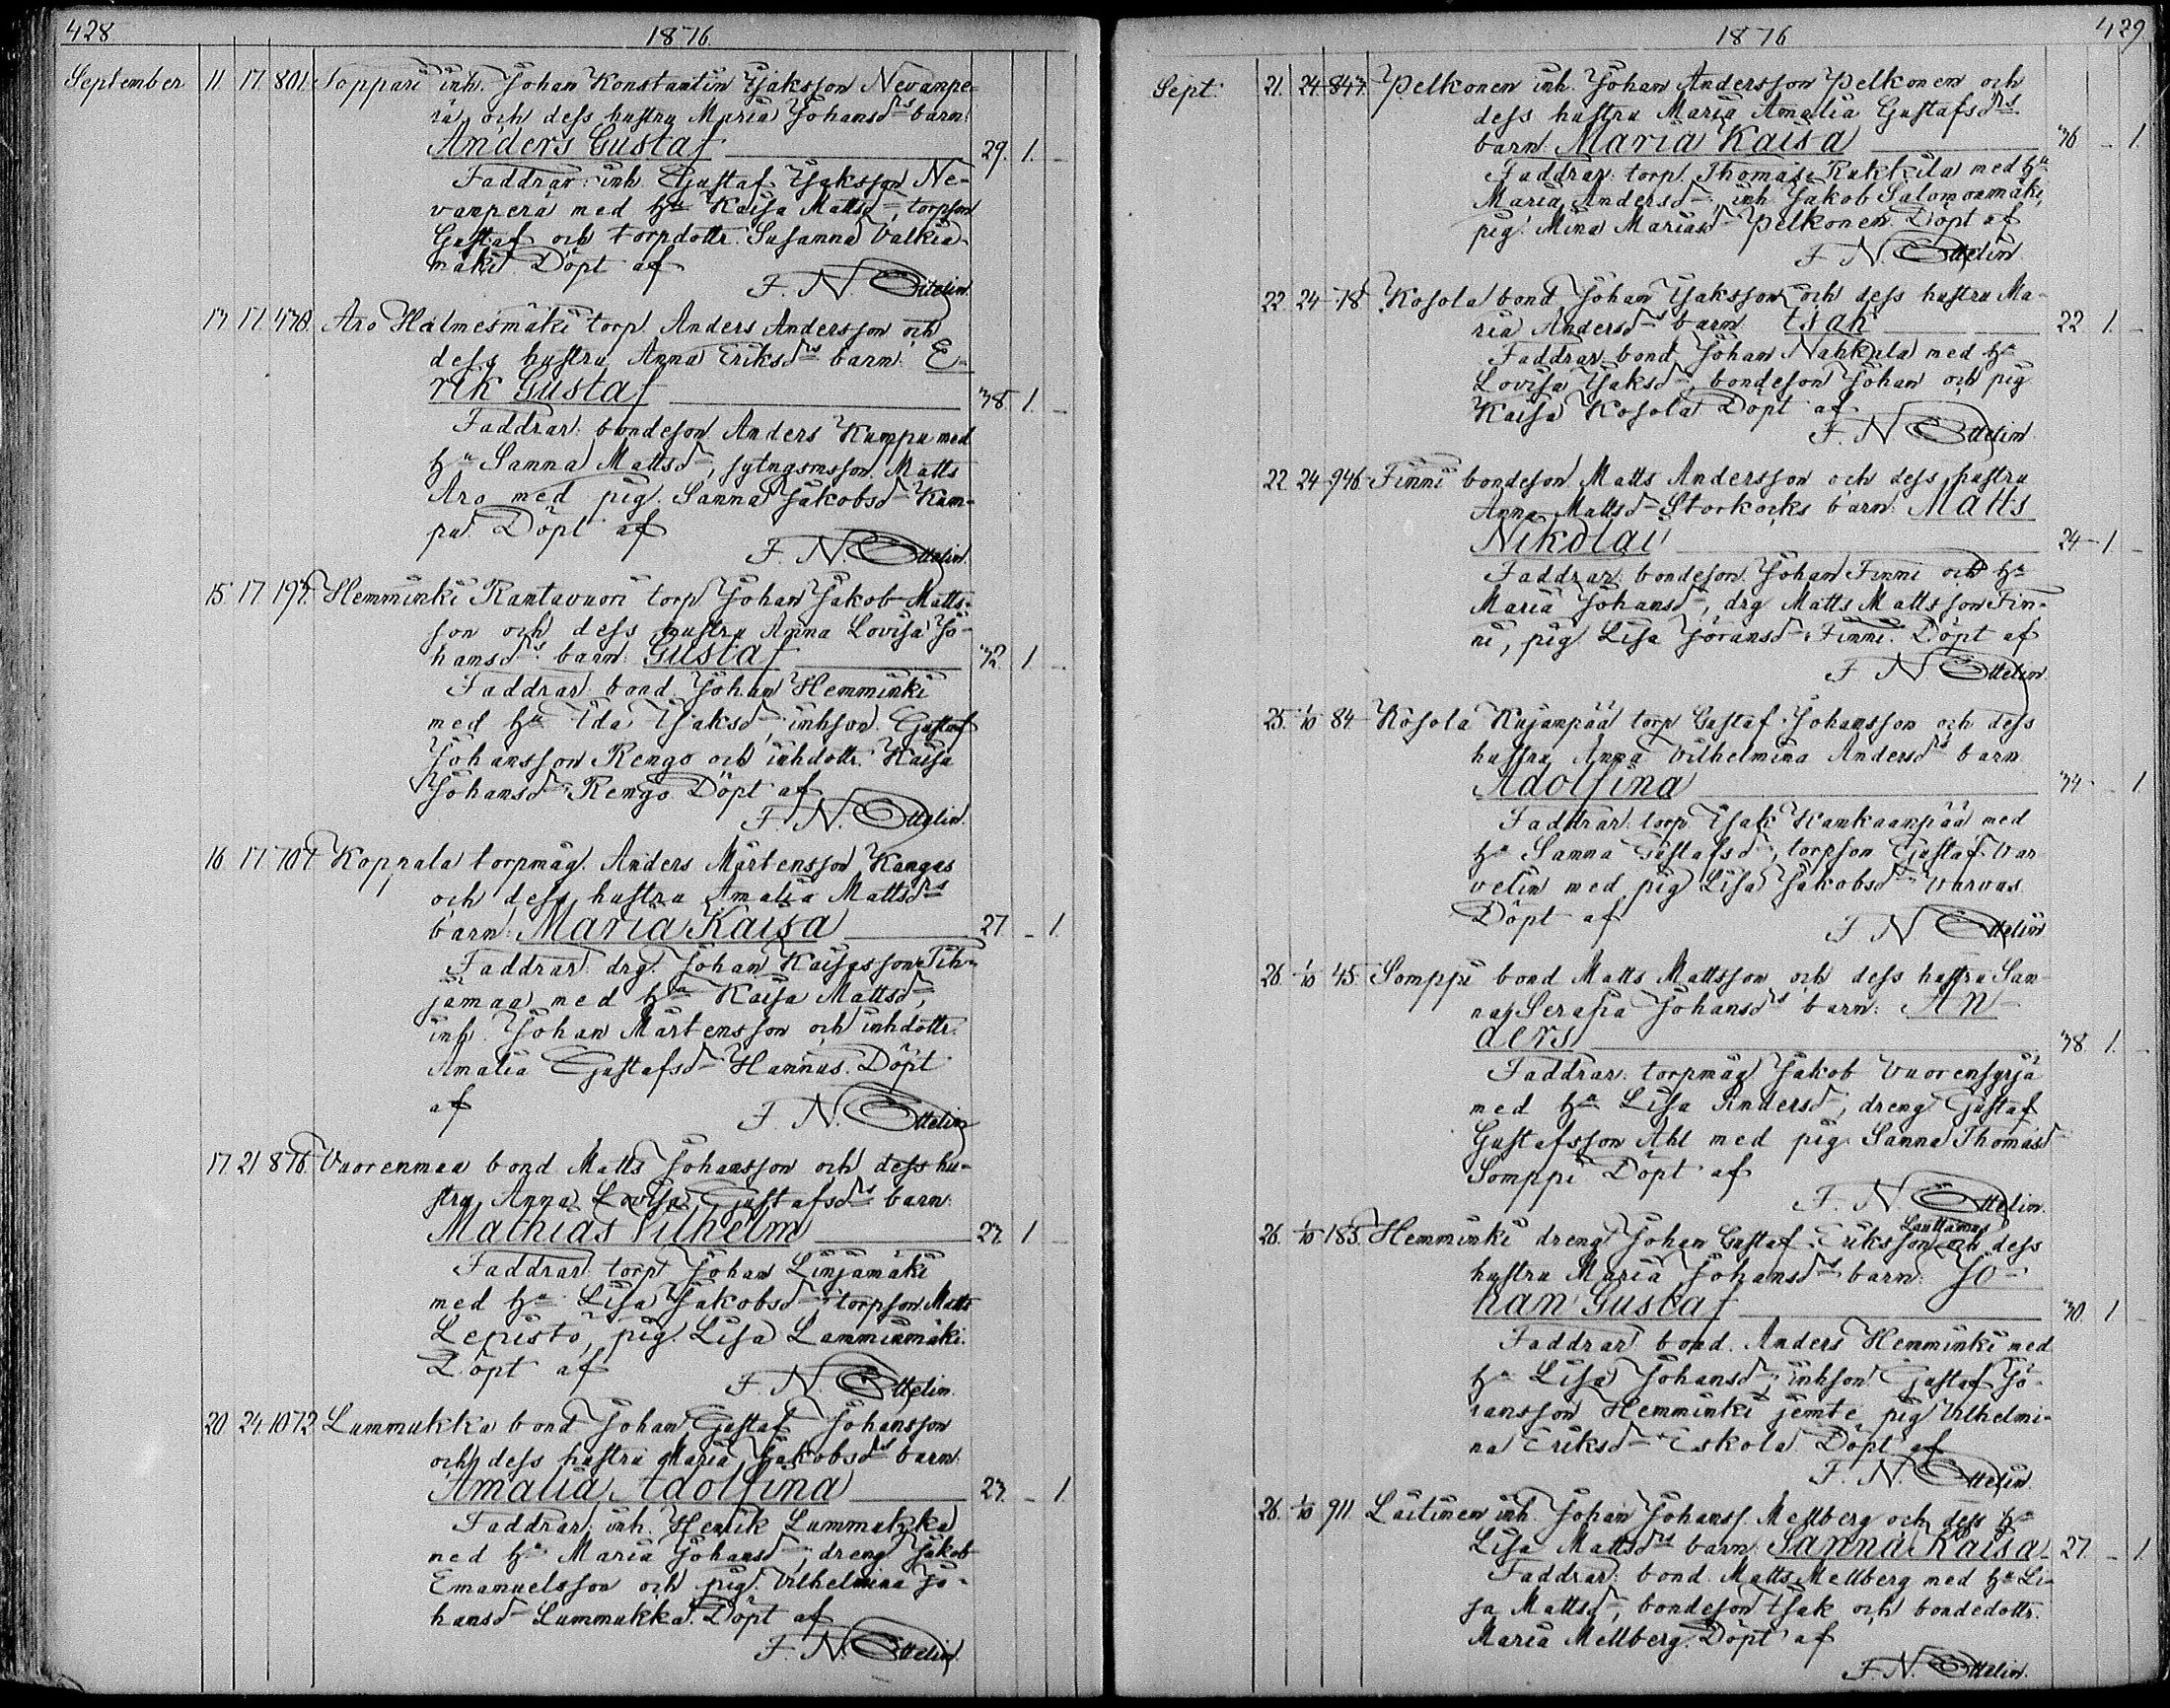 428
1876.
September 11. 17. 801. Soppari inh. Johan Konstantin Isaksson Nevanpe-
rä och dess hustru Maria Johansdrs barn:
Anders Gustaf 29. 1. -
Faddrar: inh. Gustaf Isaksson Ne-
vanperä med hu Kaisa Mattsd, torpson
Gustaf och torpdottr. Susanna Valkia-
mäki. Döpt af
F. N. Ottelin.
13. 17. 478. Aro Halmesmäki torp. Anders Andersson och
dess hustru Anna Eriksdrs barn: E-
rik Gustaf 38. 1. -
Faddrar: bondeson Anders Kumpu med
hu Sanna Mattsd, sytngsmsson Matts
Aro med pig. Sanna Jakobsd Kum-
pu. Döpt af
F. N. Ottelin.
15. 17. 193. Hemminki Rantavuori torp. Johan Jakob Matts-
son och dess hustru Anna Lovisa Jo-
hansdrs barn: Gustaf 32. 1. -
Faddrar: bond. Johan Hemminki
med hu Ida Isaksd, inhson Gustaf
Johansson Rengo och inhdottr. Kaisa
Johansd Rengo. Döpt af
F. N. Ottelin.
16. 17. 707. Koppala torpmåg. Anders Mårtensson Kangas
och dess hustru Amalia Mattsdrs
barn: Maria Kaisa 27. - 1.
Faddrar: drg. Johan Kaisasson Tih-
jämaa med hu Kaisa Mattsd,
inh. Johan Mårtensson och inhdottr.
Amalia Gustafsd Hannus. Döpt
af
F. N. Ottelin
17. 21. 876. Vuorenmaa bond Matts Johansson och dess hu-
stru Anna Lovisa Gustafsdrs barn:
Mathias Vilhelm 23. 1. -
Faddrar: torp Johan Linjamäki
med hu Lisa Jakobsd, torpson Matts
Lepistö, pig. Lisa Lamminmäki.
Döpt af
F. N. Ottelin.
20. 24. 1072. Lummukka bond Johan Gustaf Johansson
och dess hustru Maria Jakobsdrs barn
Amalia Adolfina 23. - 1.
Faddrar: inh. Henrik Lummukka
med hu Maria Johansd, dreng Jakob
Emanuelsson och pig. Vilhelmina Jo-
hansd Lummukka. Döpt af
F. N. Ottelin.
1876
429.
Sept. 21. 24. 843. Pelkonen inh. Johan Andersson Pelkonen och
dess hustru Maria Amalia Gustafsdrs
barn: Maria Kaisa 36 - 1.
Faddrar: torp. Thomas Rukkila med hu
Maria Andersd, inh. Jakob Salomonmäki,
pig. Mina Mariasd Pelkonen. Döpt af
F. N. Ottelin
22. 24. 78. Kosola bond Johan Isaksson och dess hustru Ma-
ria Andersdrs barn Isak 22 1. -
Faddrar bond Johan Nahkala med hu
Lovisa Isaksd, bondeson Johan och pig
Kaisa Kosola Döpt af
F. N Ottelin.
22. 24. 946. Finni bondeson Matts Andersson och dess hustru
Anna Mattsd Storkocks barn: Matts
Nikolai 24 1. -
Faddrar: bondeson Johan Finni och hu
Maria Johansd, drg Matts Mattsson Fin-
ni, pig Lisa Göransd Finni. Döpt af
F N Ottelin.
25. 1/10 84. Kosola Kujanpää torp Gustaf Johansson och dess
hustru Anna Vilhelmina Andersdrs barn
Adolfina 34 - 1.
Faddrar: torp Isak Kankaanpää med
hu Sanna Gustafsd, torpson Gustaf Var
velin med pig Lisa Jakobsd Varvas.
Döpt af
F N Ottelin
26. 1/10 45. Somppi bond Matts Mattsson och dess hustru San
na Serafia Johansdrs barn: An-
ders 38. 1. -
Faddrar: torpmåg Jakob Vuorensyrjä
med hu Lisa Andersd, dreng Gustaf
Gustafsson Ahl med pig Sanna Thomasd
Somppi Döpt af
F. N. Ottelin.
Lauttamus
26. 1/10 185. Hemminki dreng Johan Gustaf Eriksson och dess
hustru Maria Johansdrs barn: Jo-
han Gustaf 30. 1 -
Faddrar bond. Anders Hemminki med
hu Lisa Johansd, inhson Gustaf Jo-
hansson Hemminki jemte pig Vilhelmi-
na Eriksd Eskola. Döpt af
F. N. Ottelin.
26. 1/10 911. Laitinen inh. Johan Johanss. Mellberg och dess hu
Lisa Mattsdrs barn: Sanna Kaisa 27. - 1.
Faddrar: bond. Matts Mellberg med hu Li-
sa Mattsd, bondeson Isak och bondedottr.
Maria Mellberg. Döpt af
F. N. Ottelin.